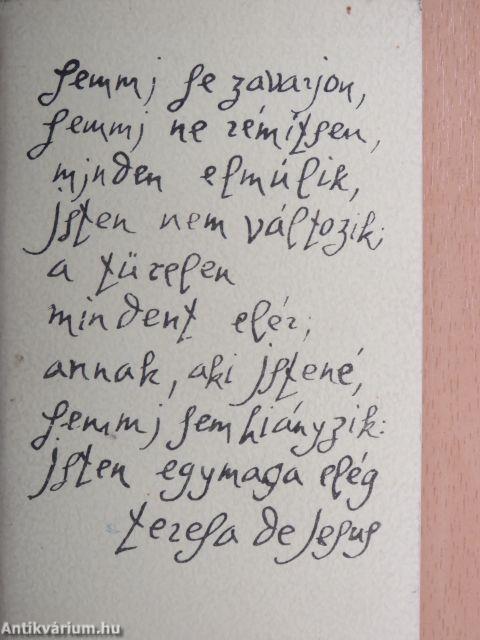 semmj se zavarjon,
semmj ne rémítsen,
mjnden elmúlik,
jsten nem változik;
a türelem
mindent elér;
annak, aki jstené,
semmj sem hiányzik:
jsten egymaga elég
teresa de Jesus
Antikvárium.hu